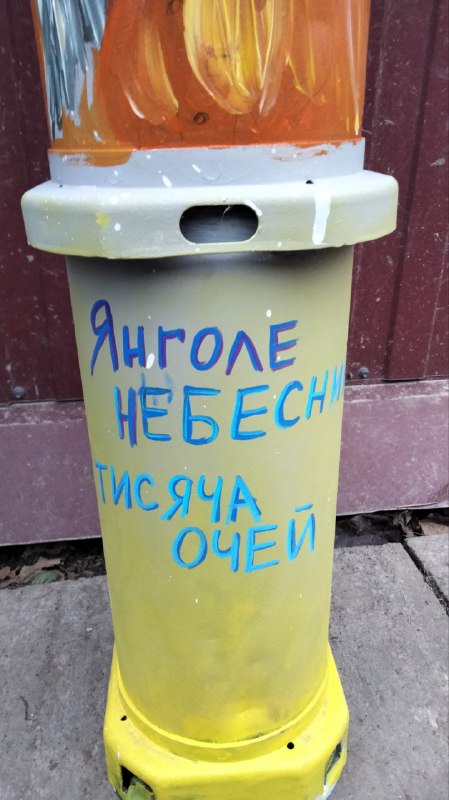 Янголе
НЕБЕСНИ
ТИСЯЧА
ОЧЕЙ